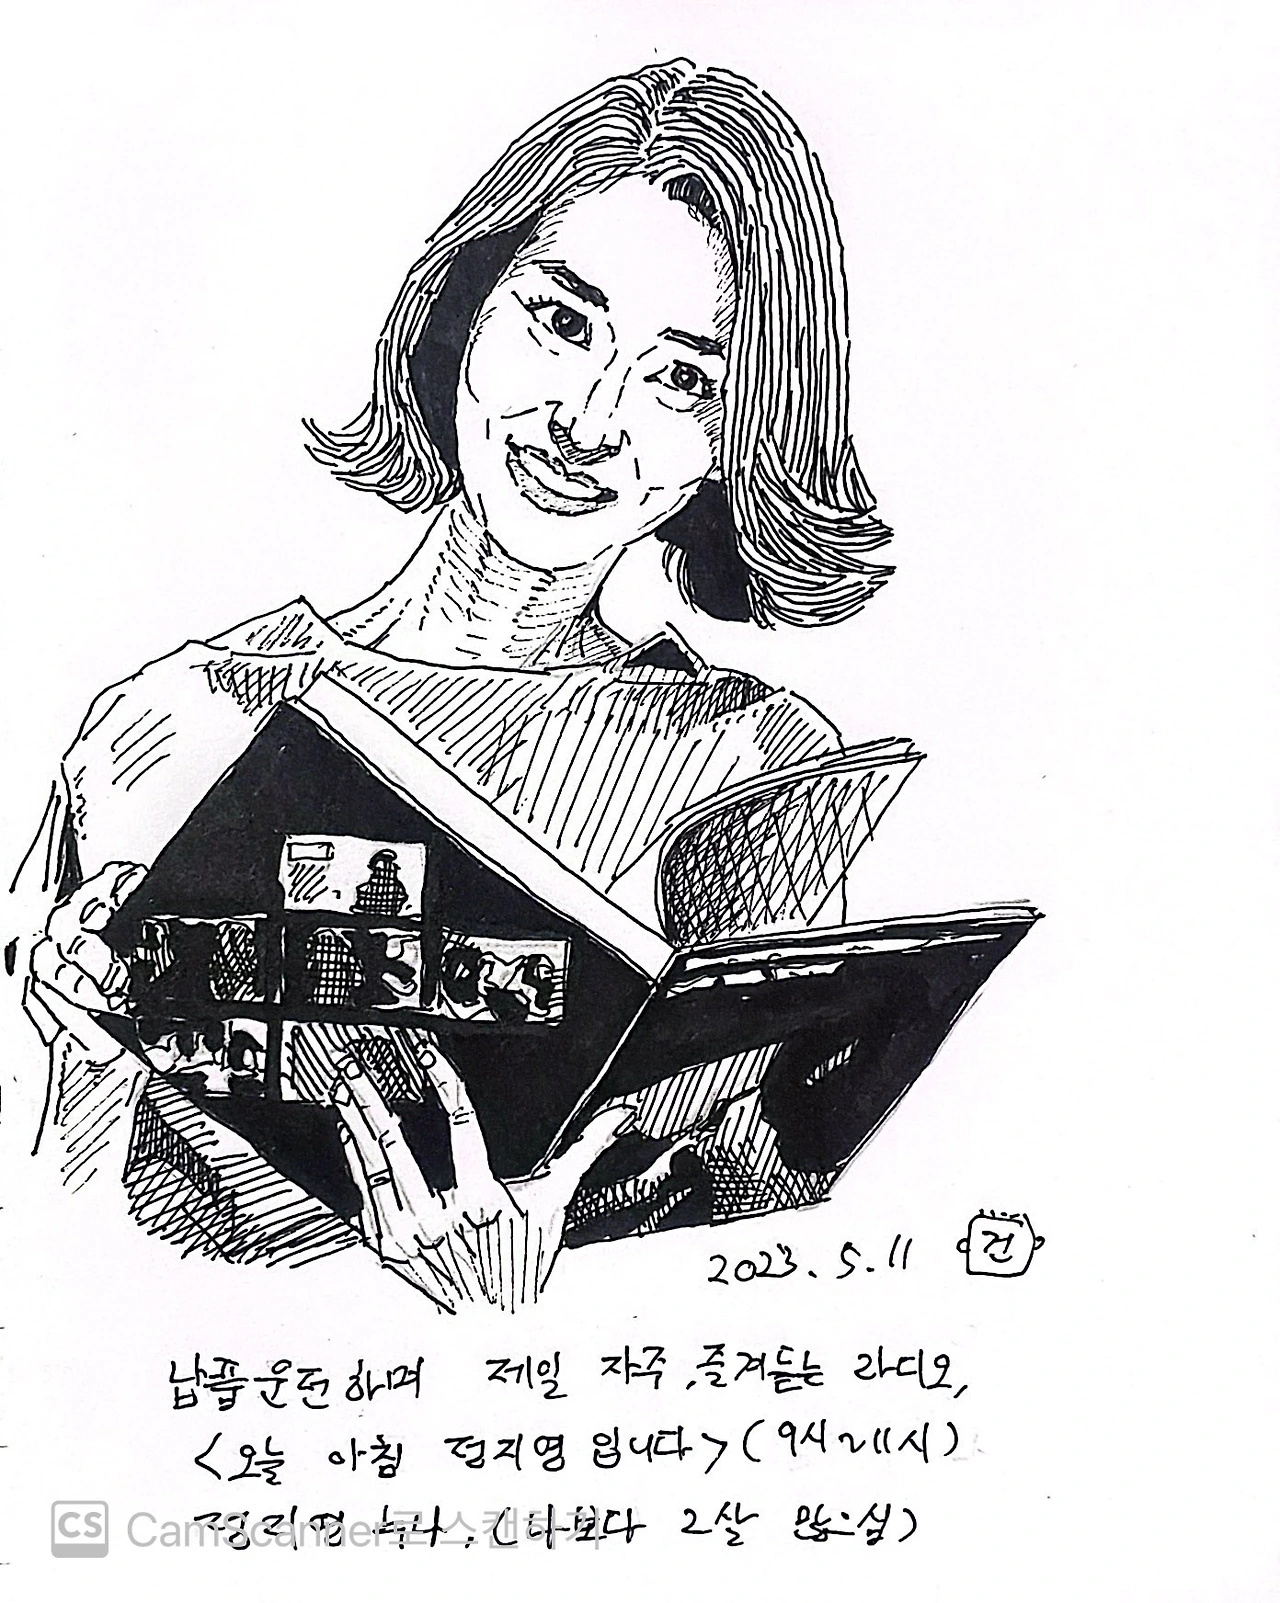 2023. 5. 11 건
납품운전하며 제일 자주, 즐겨듣는 라디오,
<오늘 아침 정지영입니다> (9시~11시)
정지영 누나. (나보다 2살 많으심)
CS CamScanner로 스캔하기